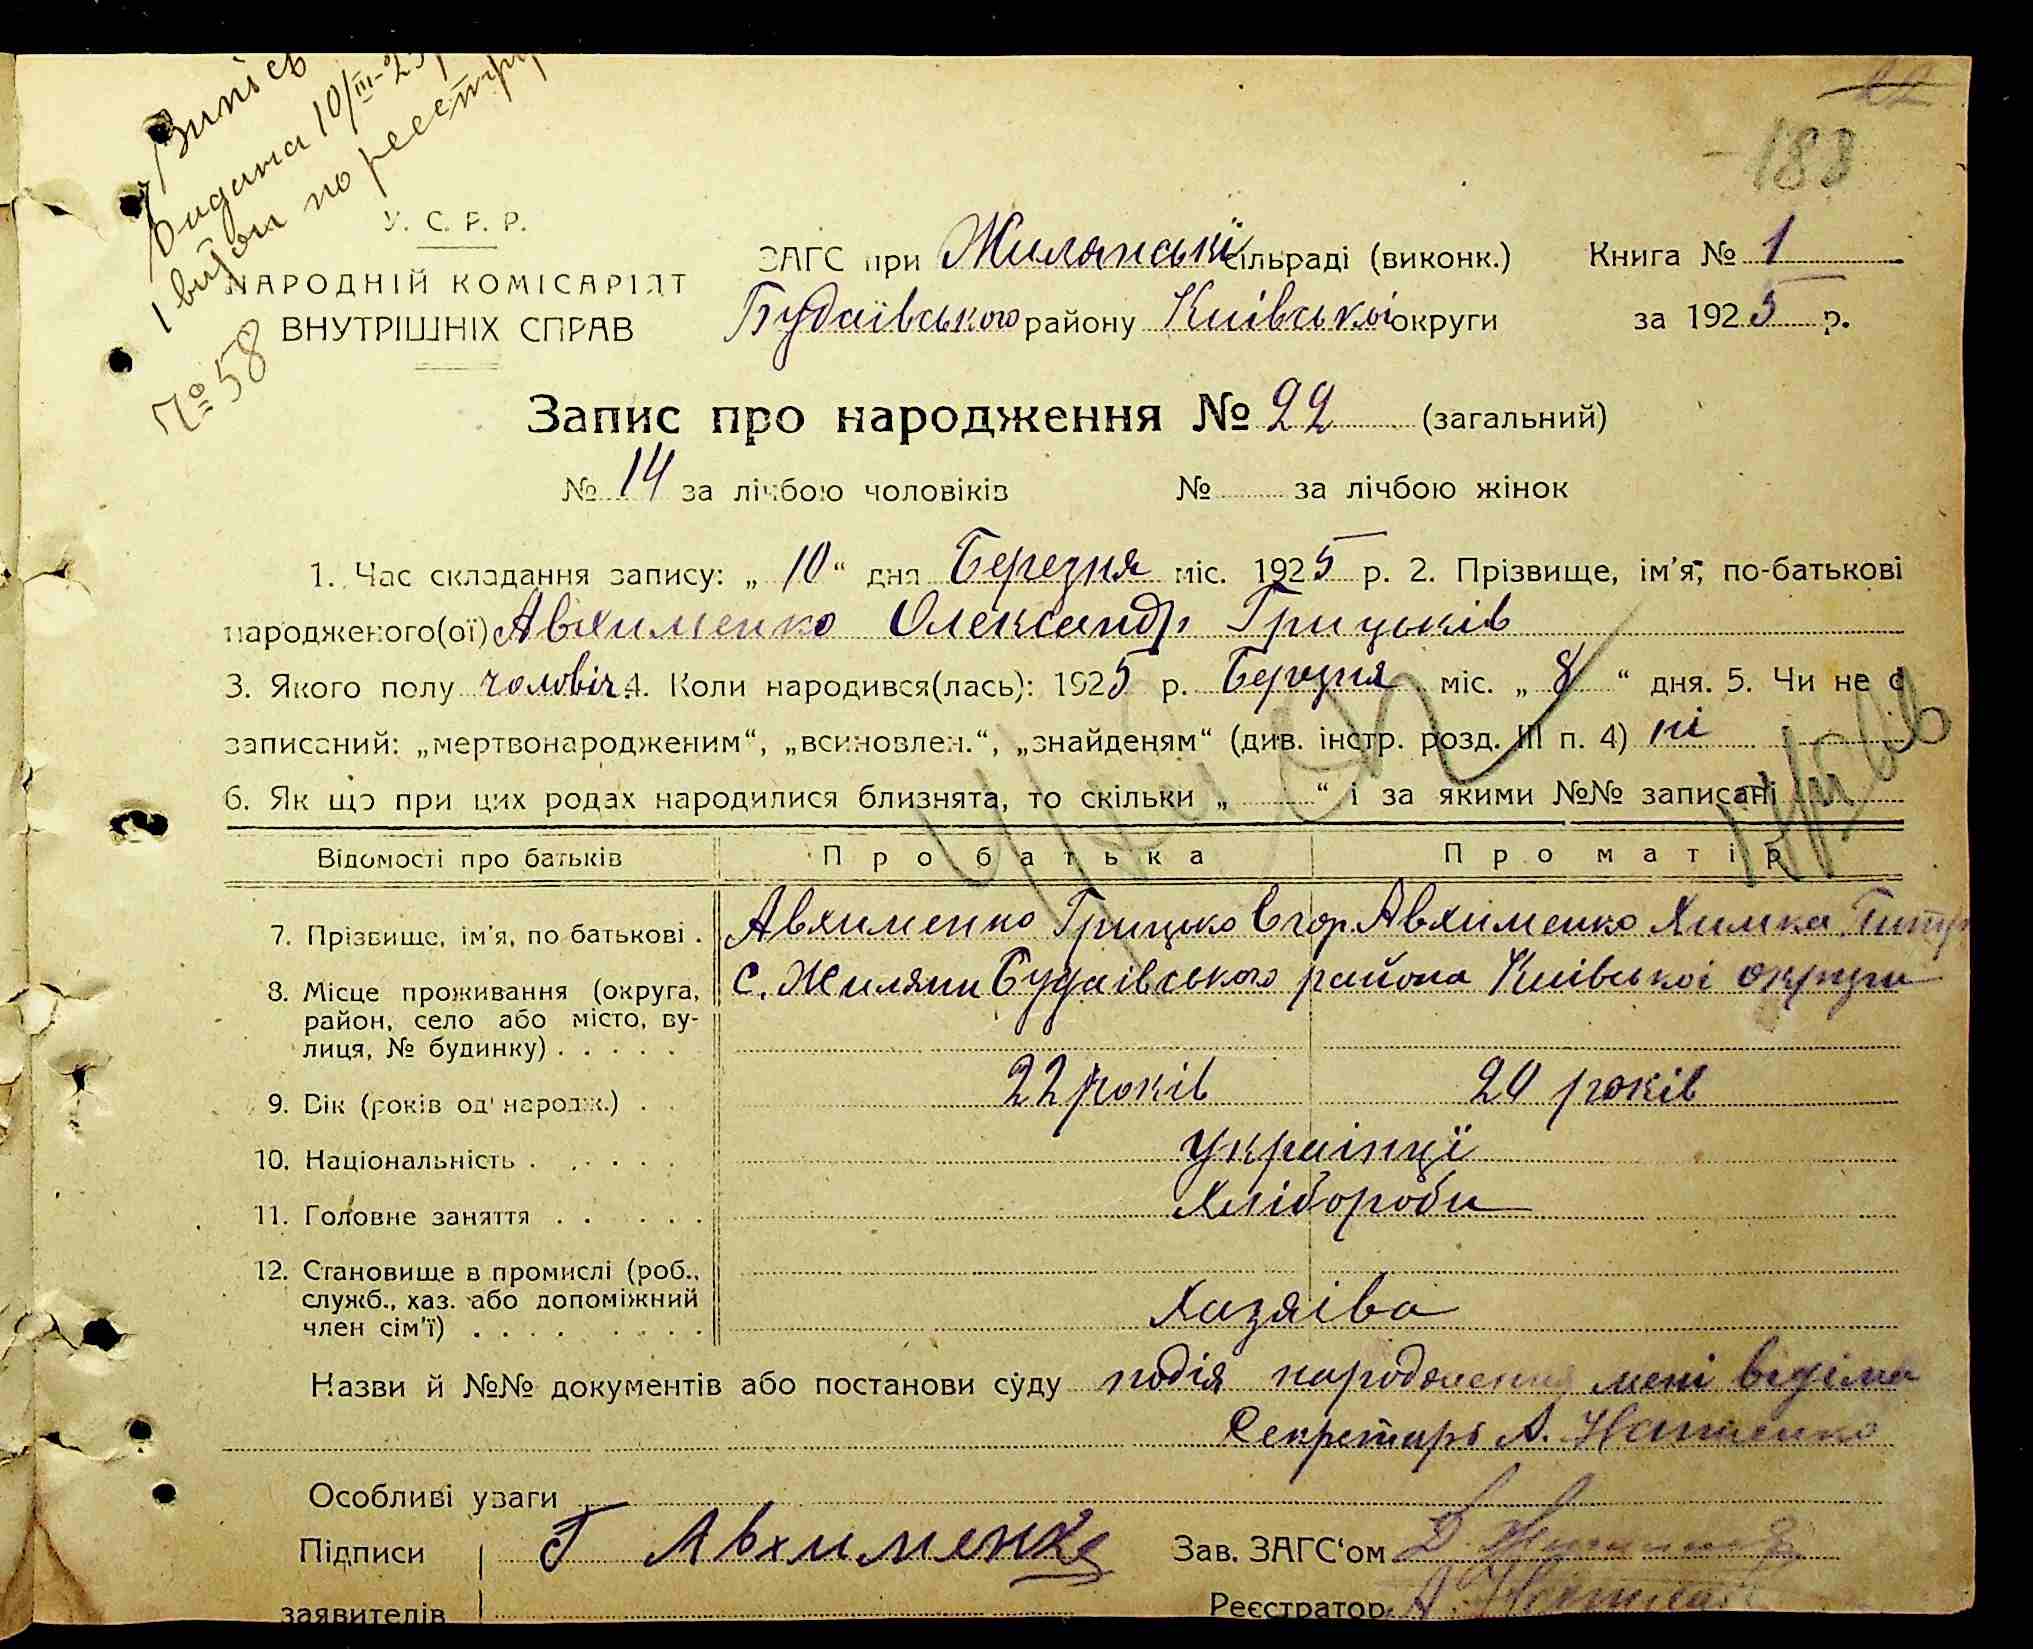 Випись
видана 10/III-25
по реєстру
№ 58
22
183
У. С. Р. Р.
НАРОДНІЙ КОМІСАРІЯТ
ВНУТРІШНІХ СПРАВ
ЗАГС при Жилянській сільраді (виконк.) Книга № 1
Будаївського району Київської округи за 1925 р.
Запис про народження № 22 (загальний)
№ 14 за лічбою чоловіків № за лічбою жінок
1. Час складання запису: „ 10 “ дня Березня міс. 1925 р. 2. Прізвище, ім'я, по-батькові
народженого(ої) Авхименко Олександр Грицьків
3. Якого полу чоловіч. 4. Коли народився(лась): 1925 р. Березня міс. „ 8 “ дня. 5. Чи не є
записаний: „мертвонародженим“, „всиновлен.“, „знайденям“ (див. інстр. розд. III п. 4) ні
6. Як що при цих родах народилися близнята, то скільки „ “ і за якими №№ записані
Відомості про батьків Про батька Про матір
7. Прізвище, ім'я, по батькові . Авхименко Грицько Єгор. Авхименко Химка
8. Місце проживання (округа, с. Жиляни Будаївського района Київської округи
район, село або місто, ву-
лиця, № будинку) . . . . .
9. Вік (років од народж.) . . 22 років 20 років
10. Національність . . . . . . Українці
11. Головне заняття . . . . . Хлібороби
12. Становище в промислі (роб.,
служб., хаз. або допоміжний
член сім'ї) . . . . . . . . Хазяіва
Назви й №№ документів або постанови суду подія народження мені відома
Секретарь А.
Особливі уваги
Підписи Г Авхименко Зав. ЗАГС'ом
заявителів Реєстратор